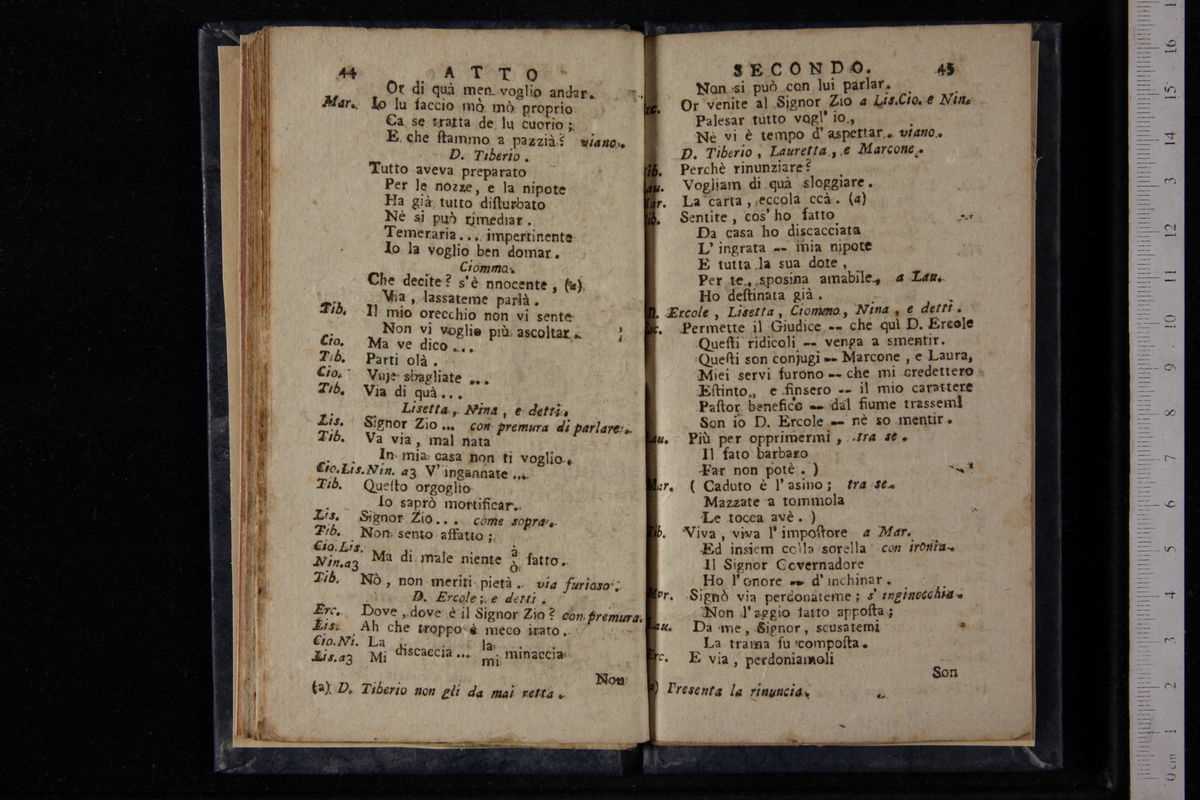 44 ATTO
Or di quà men voglio andar.
Mar. Io lu faccio mò mò proprio
Ca se tratta de lu cuorio;
E che ſtammo a pazzià? viano.
D. Tiberio.
Tutto aveva preparato
Per le nozze, e la nipote
Ha già tutto diſturbato
Nè si può rimediar.
Temeraria... impertinente
Io la voglio ben domar.
Ciommo.
Che decite? s'è nnocente, (a)
Via, lassateme parlà.
Tib. Il mio orecchio non vi sente
Non vi voglio più ascoltar.
Cio. Ma ve dico ...
Tib. Parti olà.
Cio. Vuje sbagliate ...
Tib. Via di quà...
Lisetta, Nina, e detti.
Lis. Signor Zio ... con premura di parlare.
Tib. Va via, mal nata
In mia casa non ti voglio.
Cio.Lis.Nin. a3 V' ingannate ...
Tib. Queſto orgoglio
Io saprò mortificar.
Lis. Signor Zio... come sopra.
Tib. Non sento affatto;
Cio.Lis.
Nin.a3 Ma di male niente à fatto.
ò
Tib. Nò, non meriti pietà. via furioso.
D. Ercole; e detti.
Erc. Dove, dove è il Signor Zio? con premura.
Lis. Ah che troppo è meco irato.
Cio.Ni. La discaccia... la minaccia
Lis.a3 Mi mi
Non
(a) D. Tiberio non gli da mai retta.
SECONDO. 45
Non si può con lui parlar.
Erc. Or venite al Signor Zio a Lis.Cio. e Nin.
Palesar tutto vogl' io,
Nè vi è tempo d' aspettar. viano.
D. Tiberio, Lauretta, e Marcone.
Tib. Perchè rinunziare?
Lau. Vogliam di quà sloggiare.
Mar. La carta, eccola ccà. (a)
Tib. Sentite, cos' ho fatto
Da casa ho discacciata
L' ingrata -- mia nipote
E tutta la sua dote,
Per te, sposina amabile, a Lau.
Ho deſtinata già.
D. Ercole, Lisetta, Ciommo, Nina, e detti.
Erc. Permette il Giudice -- che quì D. Ercole
Queſti ridicoli -- venga a smentir.
Queſti son conjugi -- Marcone, e Laura,
Miei servi furono -- che mi credettero
Eſtinto, e finsero -- il mio carattere
Paſtor benefico -- dal fiume trassemi
Son io D. Ercole -- nè so mentir.
Lau. Più per opprimermi, tra se.
Il fato barbaro
Far non potè. )
Mar. ( Caduto è l' asino; tra se.
Mazzate a tommola
Le tocca avè. )
Tib. Viva, viva l' impoſtore a Mar.
Ed insiem colla sorella con ironia.
Il Signor Governadore
Ho l' onore -- d' inchinar.
Mar. Signò via perdonateme; s' inginocchia.
Non l' aggio fatto appoſta;
Lau. Da me, Signor, scusatemi
La trama fu compoſta.
Erc. E via, perdoniamoli
Son
(a) Presenta la rinuncia.